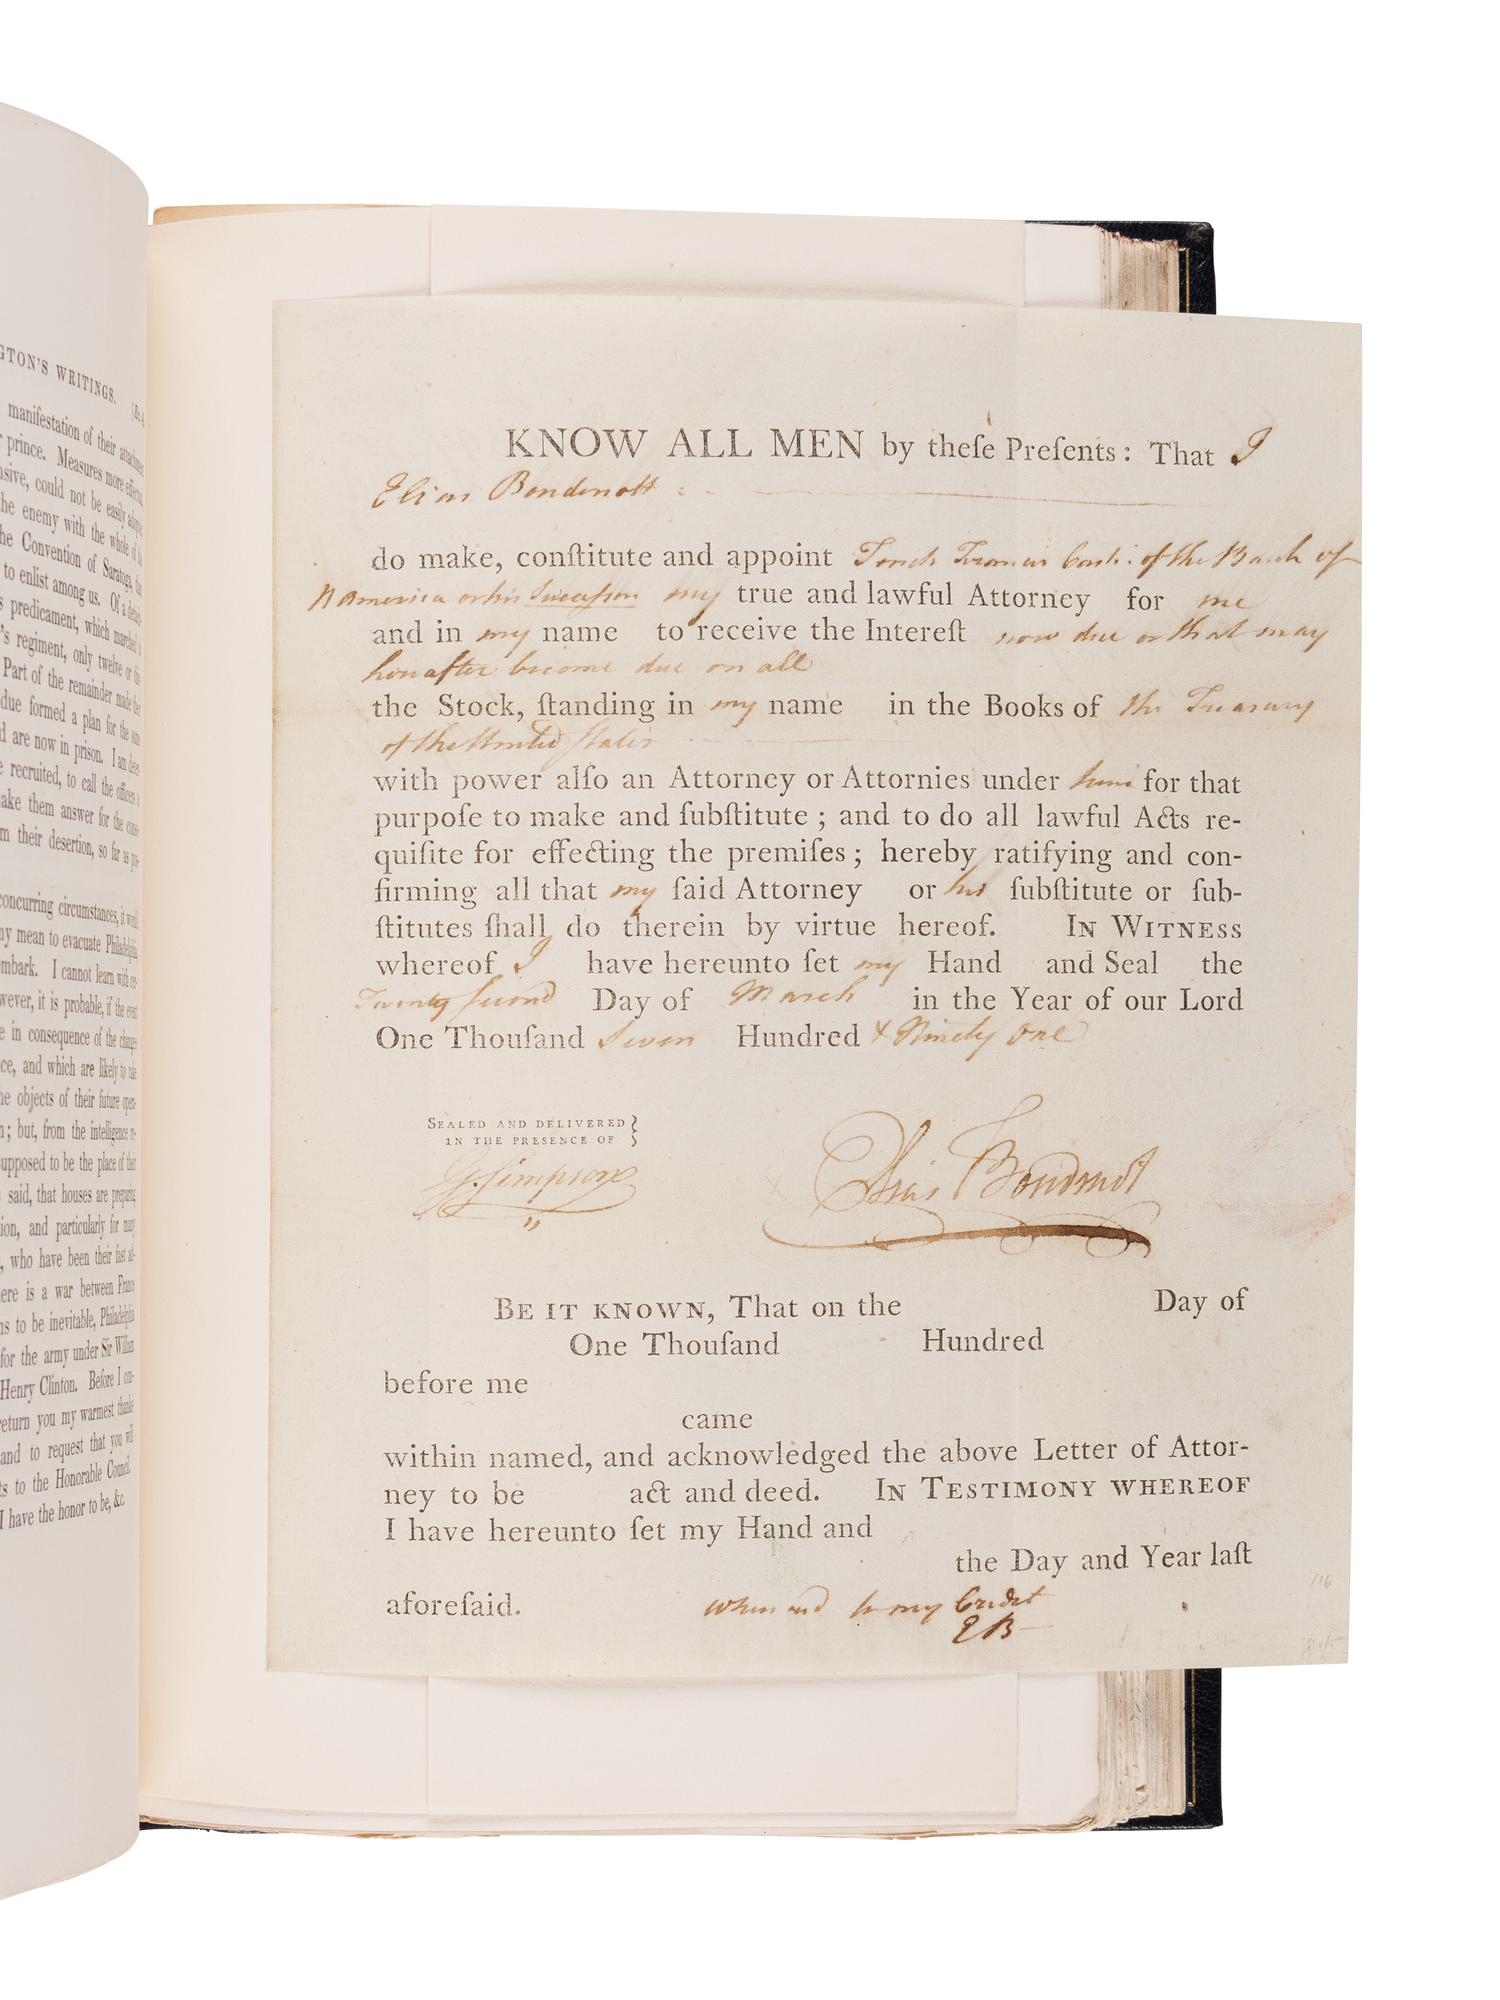 GTON'S WRITINGS.
manifestation of their attachment
prince. Measures more effectual,
nsive, could not be easily adopted
the enemy with the whole of the
the Convention of Saratoga, that
to enlist among us. Of a detach-
s predicament, which marched to
's regiment, only twelve or thir
Part of the remainder made their
due formed a plan for the same
d are now in prison. I am deter-
e recruited, to call the officers
ake them answer for the conse-
m their desertion, so far as pos-
concurring circumstances, it would
ny mean to evacuate Philadelphia
embark. I cannot learn with cer-
wever, it is probable, if the event
e in consequence of the changes
ce, and which are likely to take
he objects of their future opera-
n; but, from the intelligence re-
upposed to be the place of their
said, that houses are preparing
tion, and particularly for many
, who have been their fast ad-
ere is a war between France
ns to be inevitable, Philadelphia
for the army under Sir William
Henry Clinton. Before I con-
return you my warmest thanks
and to request that you will
ts to the Honorable Council.
I have the honor to be, &c.
KNOW ALL MEN by theſe Preſents: That I
Elias Boudinott
do make, conſtitute and appoint Tench Francis Cash: of the Bank of
N America or his Succeſsor my true and lawful Attorney for me
and in my name to receive the Intereſt now due or that may
hereafter become due on all
the Stock, ſtanding in my name in the Books of the Treasury
of the United States
with power alſo an Attorney or Attornies under him for that
purpoſe to make and ſubſtitute; and to do all lawful Acts re-
quiſite for effecting the premiſes; hereby ratifying and con-
firming all that my ſaid Attorney or his ſubſtitute or ſub-
ſtitutes ſhall do therein by virtue hereof. IN WITNESS
whereof I have hereunto ſet my Hand and Seal the
Twenty second Day of March in the Year of our Lord
One Thouſand Seven Hundred & Ninety One
SEALED AND DELIVERED
IN THE PRESENCE OF
G. Simpson
Elias Boudinot
BE IT KNOWN, That on the Day of
One Thouſand Hundred
before me
came
within named, and acknowledged the above Letter of Attor-
ney to be act and deed. IN TESTIMONY WHEREOF
I have hereunto ſet my Hand and
the Day and Year laſt
aforeſaid.
to my Credit
EB
116